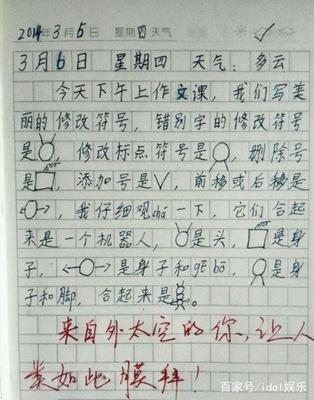 2014年3月6日 星期四天气
3月6日 星期四 天气：多云
今天下午上作文课，我们写美
丽的修改符号，错别字的修改符号
是 修改标点符号是，删除号
是，添加号是∨，前移或后移是
，我仔细观chá一下，它们合起
来是一个机器人，是头，是身
子，是身子和gēbō，是身
子和脚，合起来是。
来自外太空的你，让人
类如此膜拜！
百家号/idol娱乐